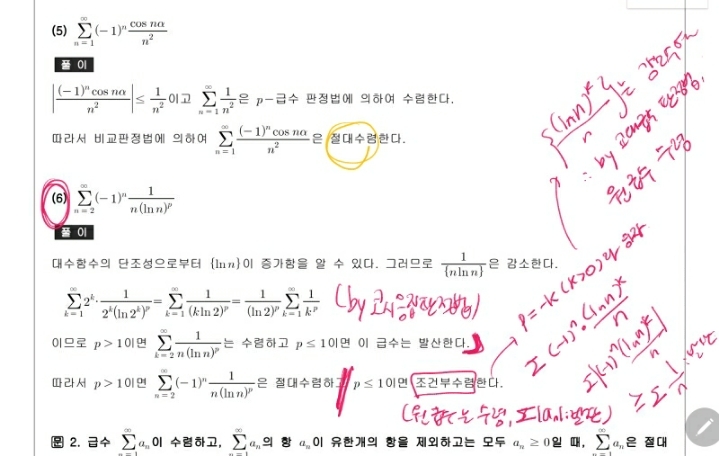 (5) $\sum_{n=1}^{\infty}(-1)^n\frac{\cos n\alpha}{n^2}$
풀 이
$\left|\frac{(-1)^n\cos n\alpha}{n^2}\right|\le\frac{1}{n^2}$이고 $\sum_{n=1}^{\infty}\frac{1}{n^2}$은 $p-$급수 판정법에 의하여 수렴한다.
따라서 비교판정법에 의하여 $\sum_{n=1}^{\infty}\frac{(-1)^n\cos n\alpha}{n^2}$은 절대수렴한다.
(6) $\sum_{n=2}^{\infty}(-1)^n\frac{1}{n(\ln n)^p}$
풀 이
대수함수의 단조성으로부터 $\{\ln n\}$이 증가함을 알 수 있다. 그러므로 $\frac{1}{\{n\ln n\}}$은 감소한다.
$\sum_{k=1}^{\infty}2^k\cdot\frac{1}{2^k(\ln 2^k)^p}=\sum_{k=1}^{\infty}\frac{1}{(k\ln 2)^p}=\frac{1}{(\ln 2)^p}\sum_{k=1}^{\infty}\frac{1}{k^p}$ (by 코시응집판정법)
이므로 $p>1$이면 $\sum_{k=2}^{\infty}\frac{1}{n(\ln n)^p}$는 수렴하고 $p\le1$이면 이 급수는 발산한다.
따라서 $p>1$이면 $\sum_{n=2}^{\infty}(-1)^n\frac{1}{n(\ln n)^p}$은 절대수렴하고 $p\le1$이면 조건부수렴한다.
(원급수는 수렴, $\sum|a_n|$:발산)
$p=-k(k>0)$라 하자
$\sum(-1)^n\cdot\frac{(\ln n)^k}{n}$
$\sum|(-1)^n\frac{(\ln n)^k}{n}|$
$\ge\sum\frac{1}{n}$:발산
$\left\{\frac{(\ln n)^k}{n}\right\}$는
∴ by 교대급수 판정법,
원급수 수렴
문 2. 급수 $\sum_{n=1}^{\infty}a_n$이 수렴하고, $\sum_{n=1}^{\infty}a_n$의 항 $a_n$이 유한개의 항을 제외하고는 모두 $a_n\ge0$일 때, $\sum_{n=1}^{\infty}a_n$은 절대